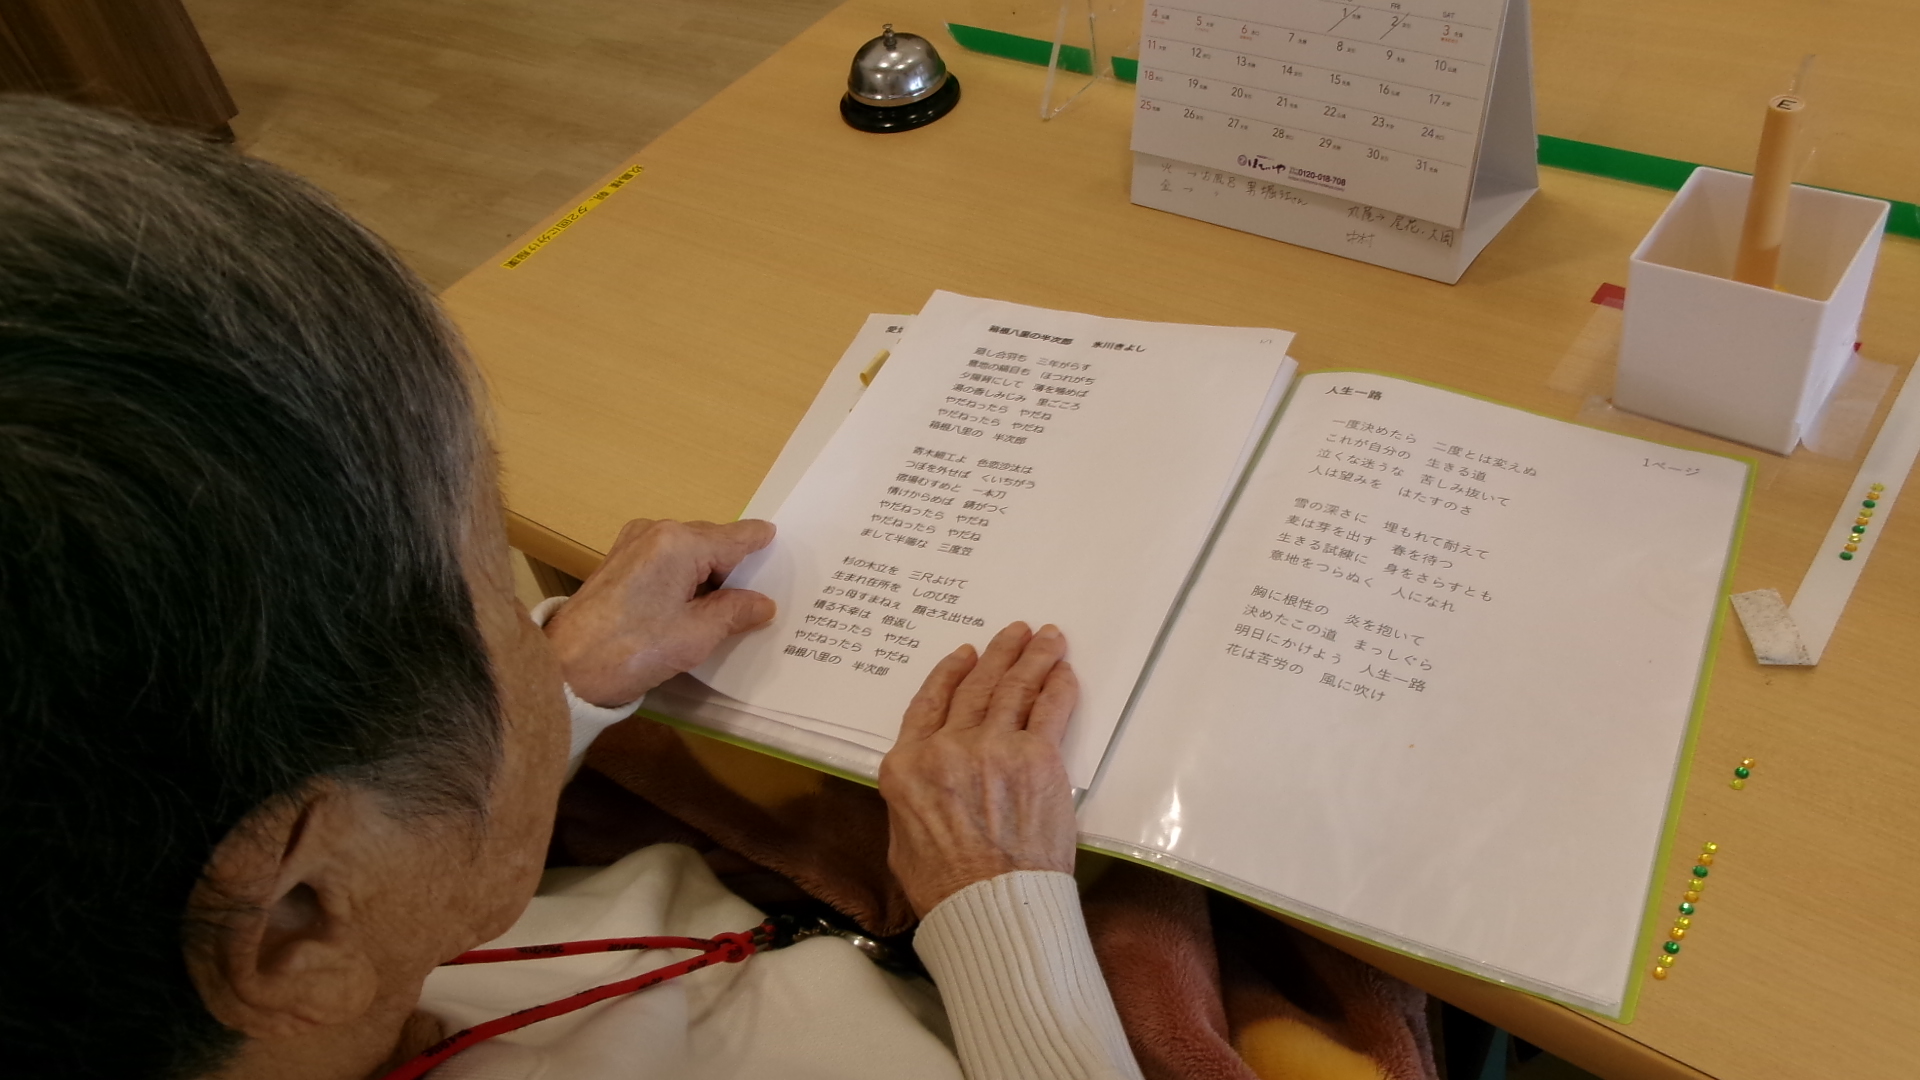 FRI
SAT
1
2
3
4
5
6
7
8
9
10
11
12
13
14
15
16
17
18
19
20
21
22
23
24
25
26
27
28
29
30
31
0120-018-708
E
朝、夕2回に分け服薬
箱根八里の半次郎 氷川きよし
廻し合羽も 三年がらす
意地の縞目も ほつれがち
夕陽背にして 薄を噛めば
湯の香しみじみ 里ごころ
やだねったら やだね
やだねったら やだね
箱根八里の 半次郎
寄木細工よ 色恋沙汰は
つぼを外せば くいちがう
宿場むすめと 一本刀
情けからめば 錆がつく
やだねったら やだね
やだねったら やだね
まして半端な 三度笠
杉の木立を 三尺よけて
生まれ在所を しのび笠
おっ母すまねぇ 顔さえ出せぬ
積る不幸は 倍返し
やだねったら やだね
やだねったら やだね
箱根八里の 半次郎
人生一路
1ページ
一度決めたら 二度とは変えぬ
これが自分の 生きる道
泣くな迷うな 苦しみ抜いて
人は望みを はたすのさ
雪の深さに 埋もれて耐えて
麦は芽を出す 春を待つ
生きる試練に 身をさらすとも
意地をつらぬく 人になれ
胸に根性の 炎を抱いて
決めたこの道 まっしぐら
明日にかけよう 人生一路
花は苦労の 風に吹け